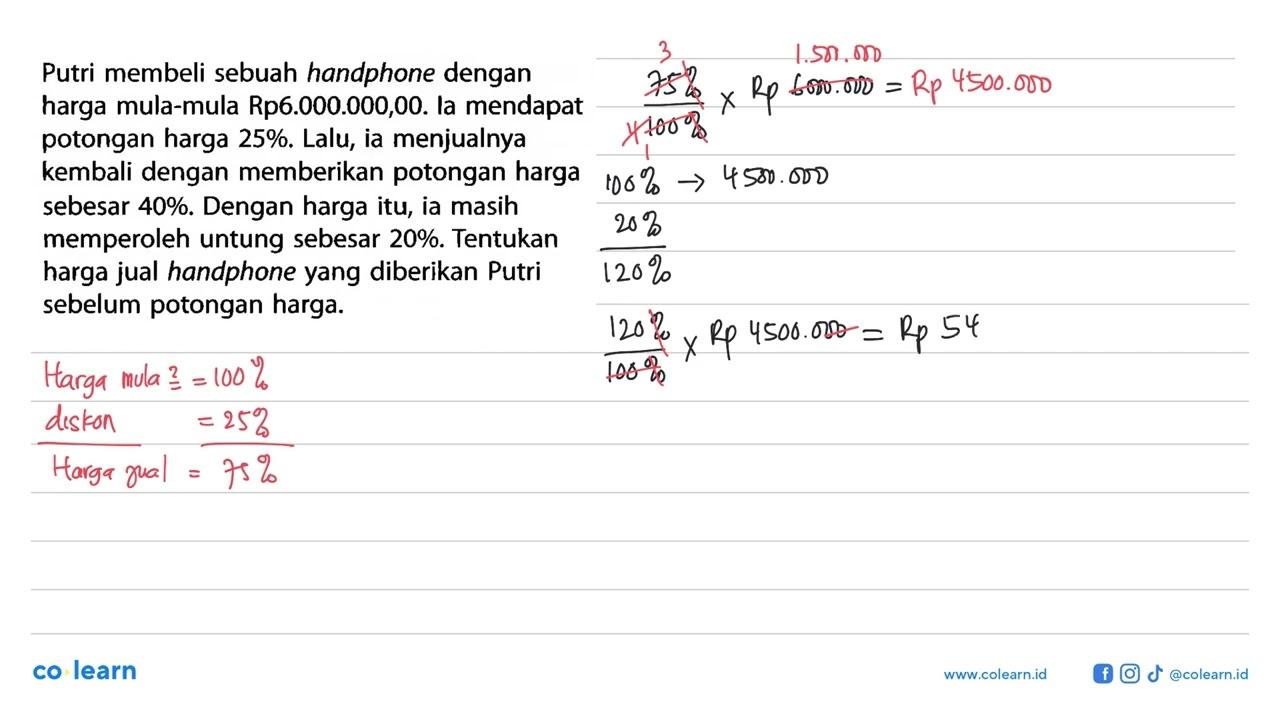 Putri membeli sebuah handphone dengan
harga mula-mula Rp6.000.000,00. Ia mendapat
potongan harga 25%. Lalu, ia menjualnya
kembali dengan memberikan potongan harga
sebesar 40%. Dengan harga itu, ia masih
memperoleh untung sebesar 20%. Tentukan
harga jual handphone yang diberikan Putri
sebelum potongan harga.
Harga mula2 = 100%
diskon = 25%
Harga jual = 75%
3 1 1.500.000
75% × Rp 6000.000 = Rp 4500.000
4 100%
1
100% → 4500.000
20%
120%
120% × Rp 4500.000 = Rp 54
100%
co learn
www.colearn.id
@colearn.id